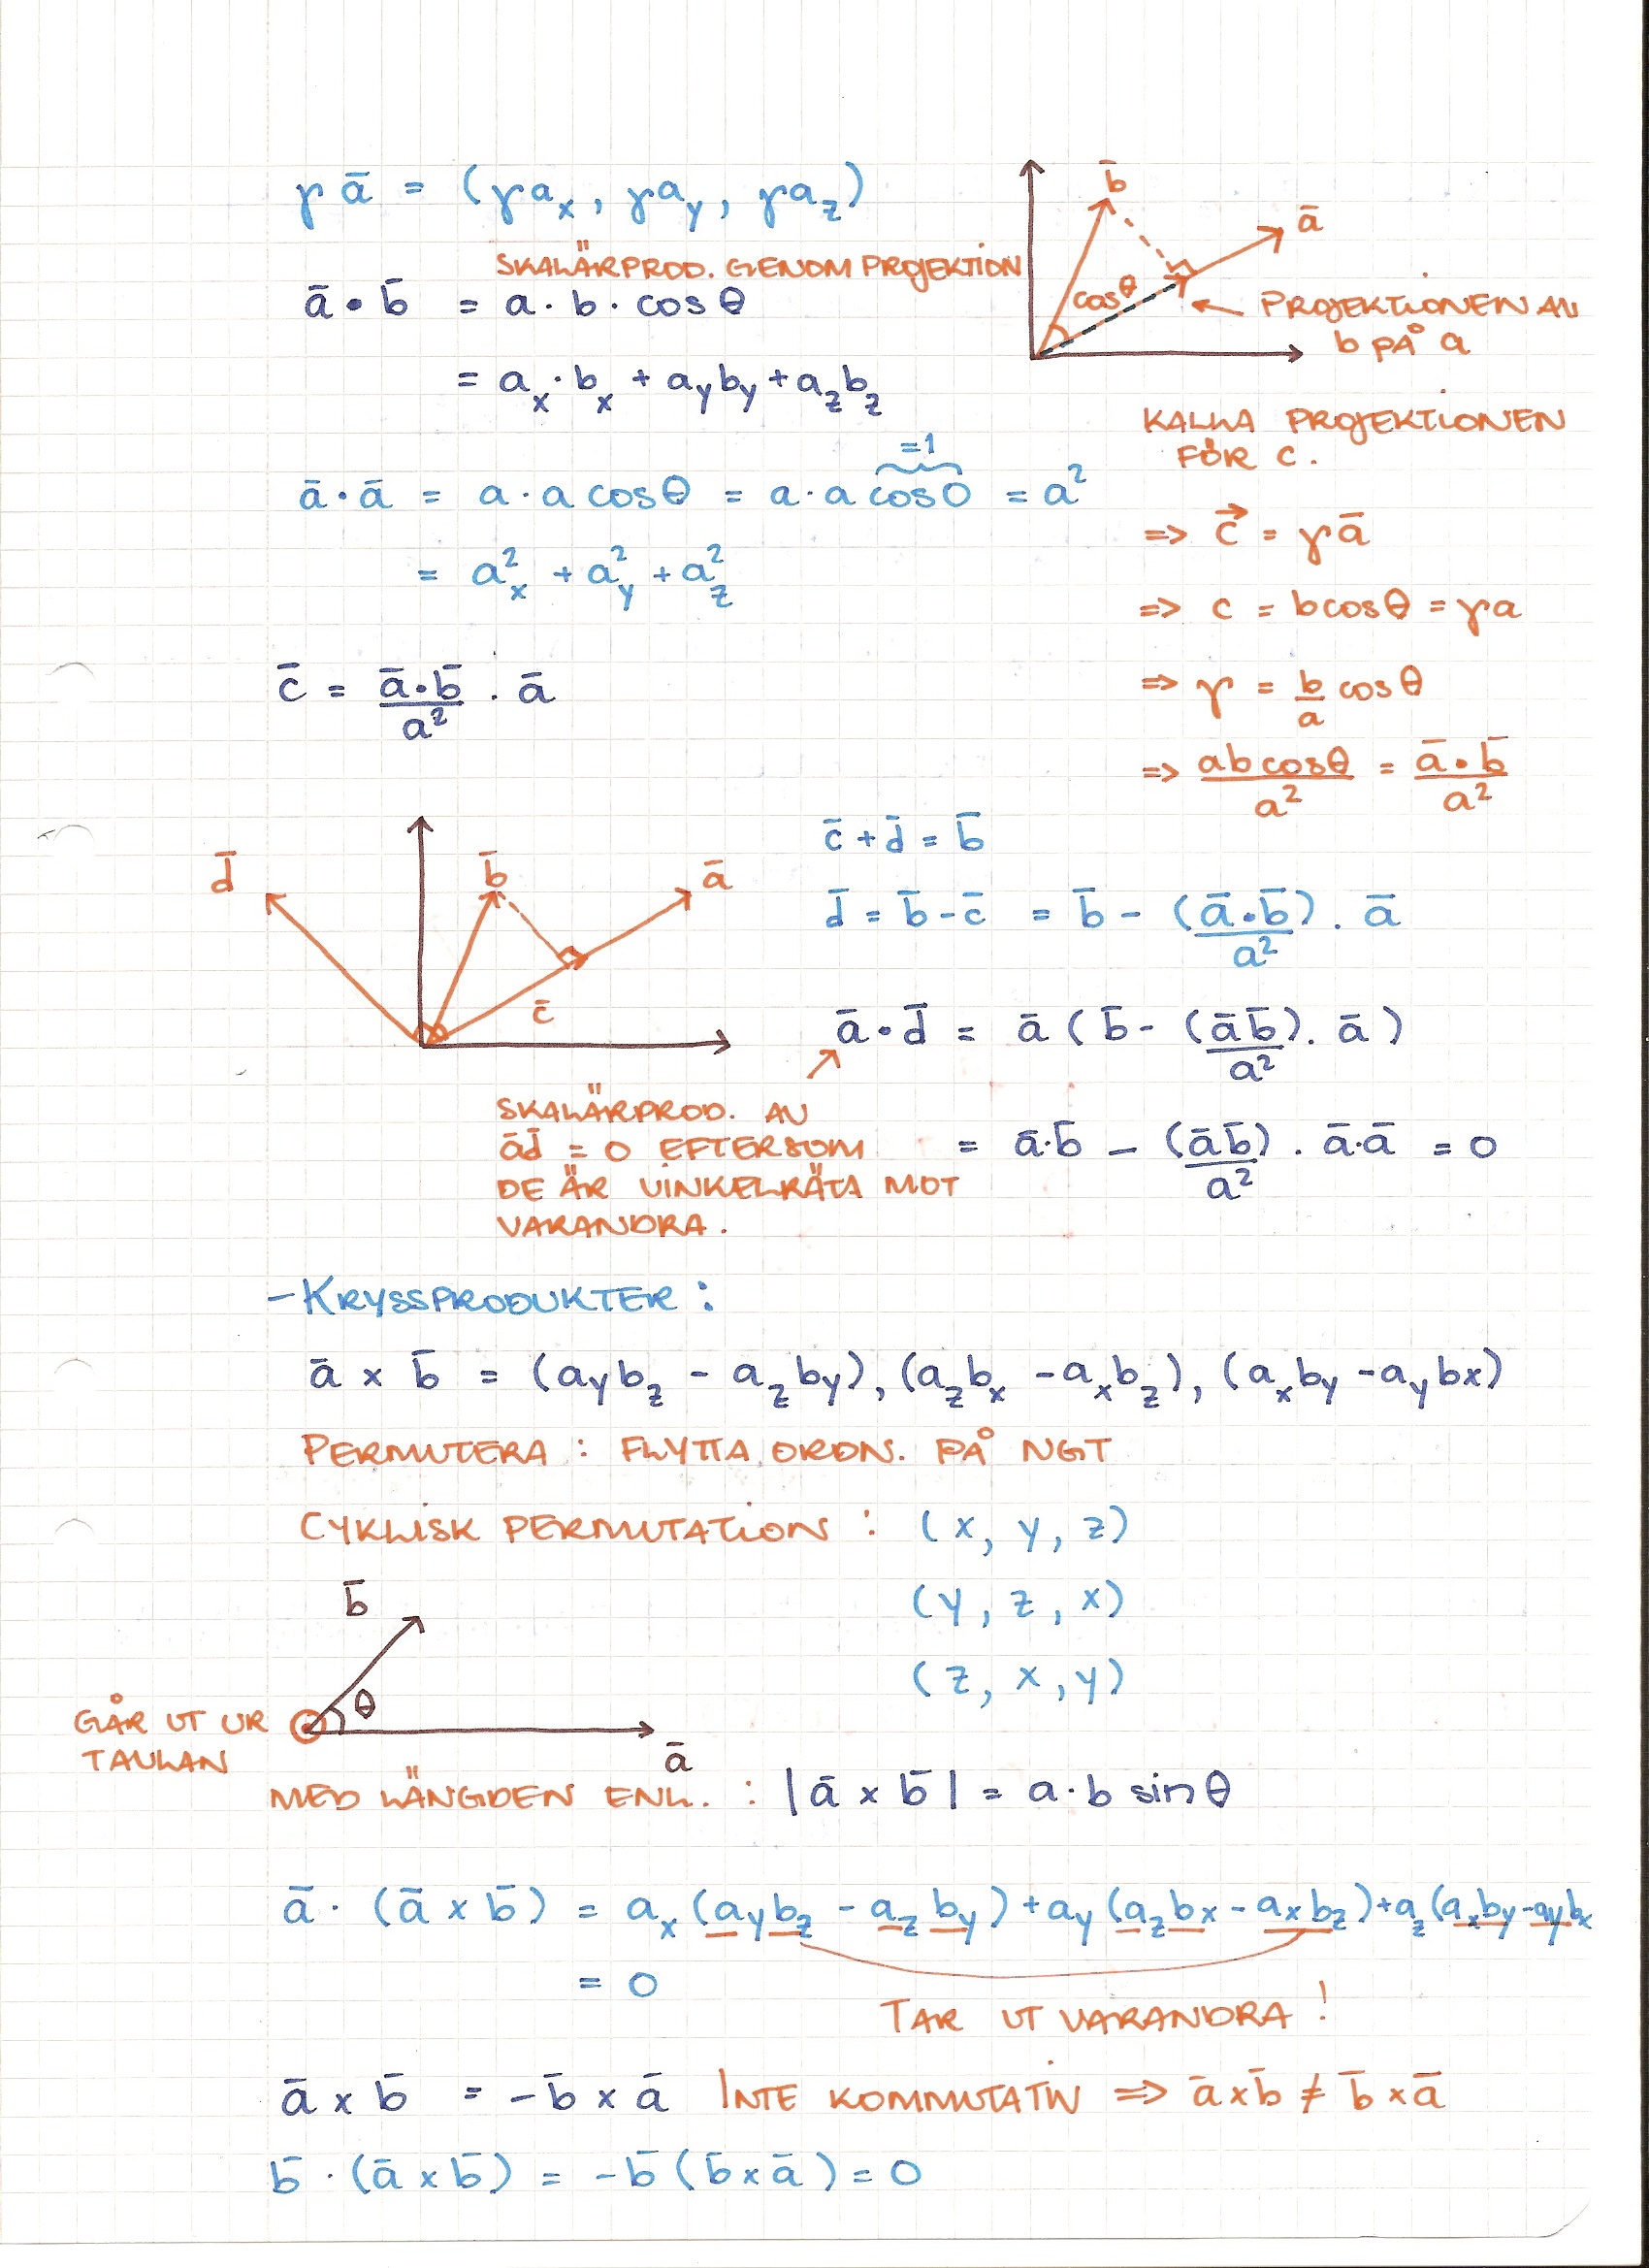 γ ā = (γa_x, γa_y, γa_z)
SKALÄRPROD. GENOM PROJEKTION
ā • b̄ = a · b · cos θ
= a_x · b_x + a_y b_y + a_z b_z
b̄
ā
cos θ
PROJEKTIONEN AV
b PÅ a
KALLA PROJEKTIONEN
FÖR C.
=1
ā · ā = a · a cos θ = a · a cos 0 = a²
= a_x² + a_y² + a_z²
=> c⃗ = γ ā
=> c = b cos θ = γ a
=> γ = b/a cos θ
=> ab cos θ / a² = ā • b̄ / a²
c̄ = ā • b̄ / a² · ā
d̄
b̄
ā
c̄
c̄ + d̄ = b̄
d̄ = b̄ - c̄ = b̄ - (ā • b̄)/a² · ā
ā • d̄ = ā ( b̄ - (ā b̄)/a² · ā )
= ā · b̄ - (ā b̄)/a² · ā · ā = 0
SKALÄRPROD. AV
ā d̄ = 0 EFTERSOM
DE ÄR VINKELRÄTA MOT
VARANDRA.
- KRYSSPRODUKTER :
ā × b̄ = (a_y b_z - a_z b_y), (a_z b_x - a_x b_z), (a_x b_y - a_y b_x)
PERMUTERA : FLYTTA ORDN. PÅ NGT
CYKLISK PERMUTATION : (x, y, z)
(y, z, x)
(z, x, y)
b̄
θ
ā
GÅR UT UR
TAVLAN
MED LÄNGDEN ENL. : |ā × b̄| = a · b sin θ
ā · (ā × b̄) = a_x (a_y b_z - a_z b_y) + a_y (a_z b_x - a_x b_z) + a_z (a_x b_y - a_y b_x
= 0
TAR UT VARANDRA !
ā × b̄ = - b̄ × ā INTE KOMMUTATIV => ā × b̄ ≠ b̄ × ā
b̄ · (ā × b̄) = - b̄ (b̄ × ā) = 0